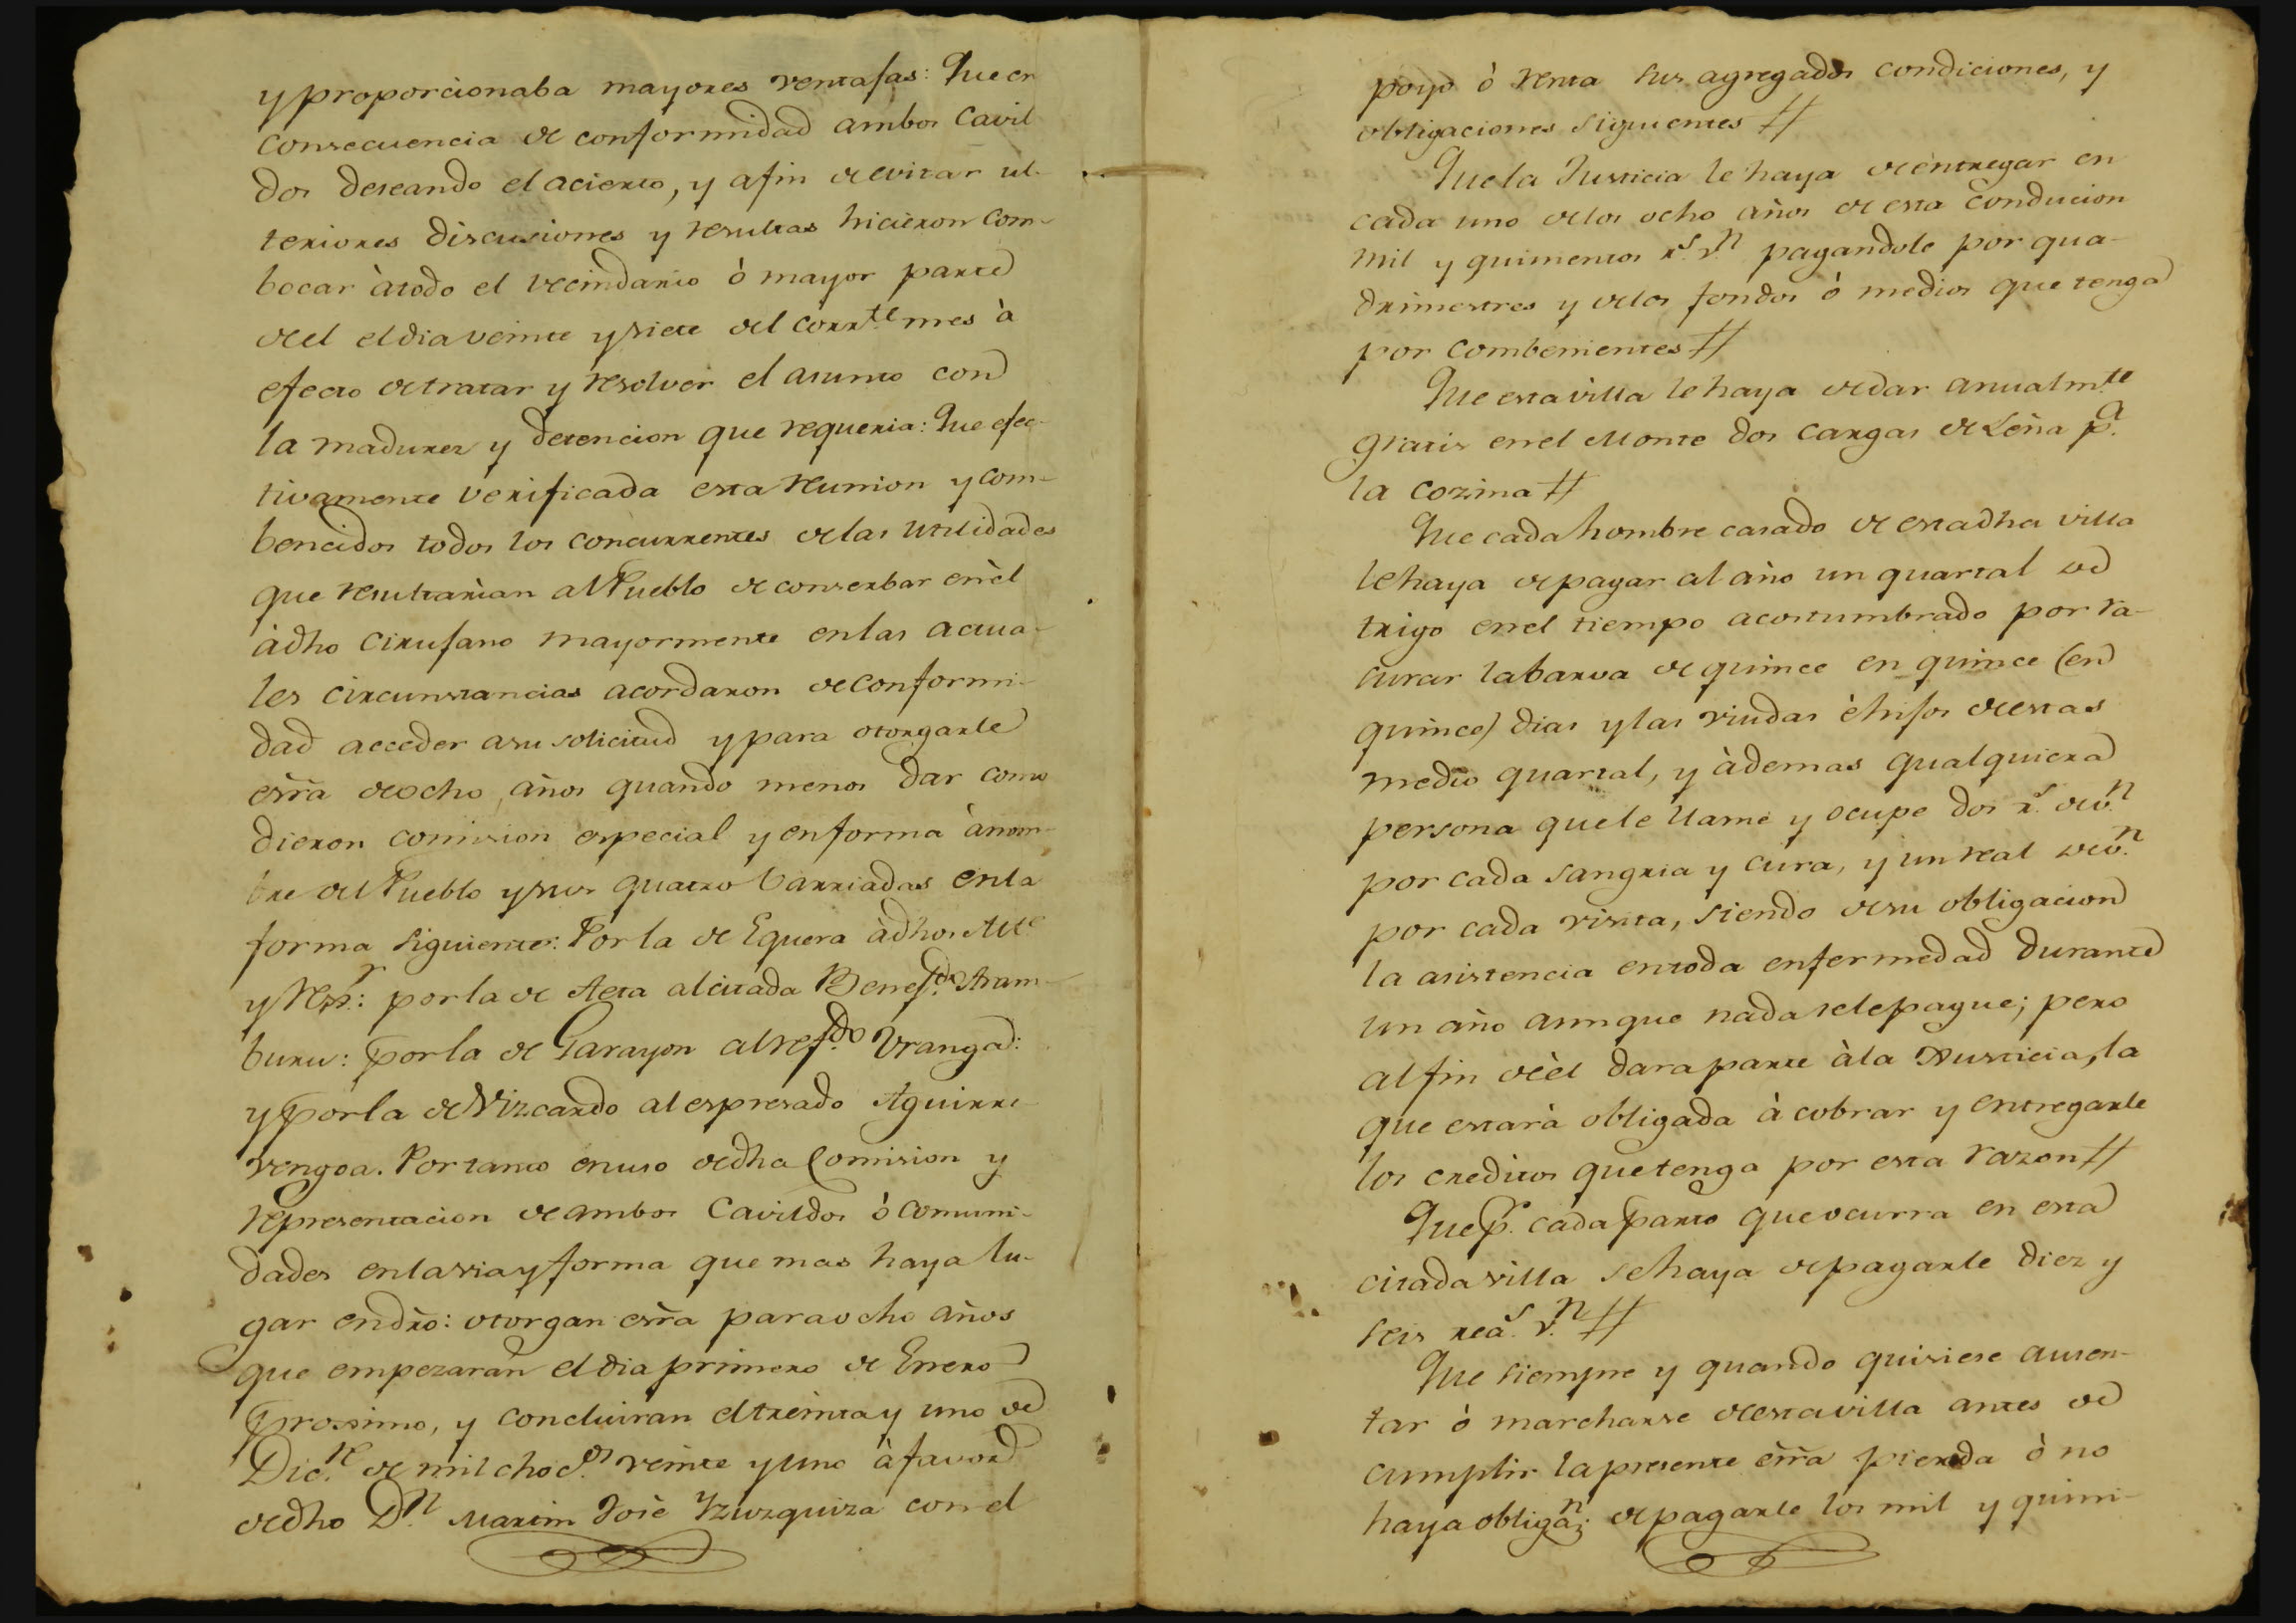 y proporcionaba mayores ventajas: Que en
consecuencia de conformidad ambos Cavil
dos deseando el acierto, y afin de evitar ul-
teriores discusiones y resultas hicieron com-
bocar à todo el vecindario ò mayor parte
de el el dia veinte y siete del corr.te mes à
efecto de tratar y resolver el asunto con
la madurez y detencion que requeria: Que efec-
tivamente verificada esta reunion y com-
bencidos todos los concurrentes de las utilidades
que resultarian al Pueblo de conserbar en èl
à dho cirujano mayormente en las actua-
les circunstancias acordaron de conformi-
dad acceder a su solicitud y para otorgarle
esrra de ocho años quando menos dar como
dieron comision especial y en forma à nom-
bre del Pueblo y sus quatro barriadas en la
forma siguiente: Por la de Eguera à dhos Alc.e
y Rexr.: por la de Aeta al citada Benefdo. Aram-
buru: por la de Garayon al refdo. Vranga:
y por la de Vizcardo al espresado Aguirre-
vengoa. Por tanto en uso de dha Comision y
representacion de ambos Cavildos ò comuni-
dades en la via y forma que mas haya lu-
gar en dro: otorgan esrra para ocho años
que empezaràn el dia primero de Enero
prossimo, y concluiran el treinta y uno de
Dic.re de mil ochoc.os veinte y uno à favor
de dho D.n Martin Josè Yzuzquiza con el
poyo ò renta sus agregados condiciones, y
obligaciones siguientes //
Que la Justicia le haya de entregar en
cada uno de los ocho años de esta conducion
mil y quinientos r.s v.n pagandole por qua-
drimestres y de los fondos ò medios que tenga
por combenientes //
Que esta villa le haya de dar anualm.te
gratis en el Monte dos cargas de Leña p.a
la cozina //
Que cada hombre casado de esta dha villa
le haya de pagar al año un quartal de
trigo en el tiempo acostumbrado por ra-
surar la barva de quince en quince (en
quince) dias y las viudas è hijos de estas
medio quartal, y àdemas qualquiera
persona que le llame y ocupe dos r.s de v.n
por cada sangria y cura, y un real de v.n
por cada visita, siendo de su obligacion
la asistencia en toda enfermedad durante
un año aunque nada se le pague; pero
al fin de èl dara parte à la Justicia, la
que estarà obligada à cobrar y entregarle
los creditos que tenga por esta razon //
Que p.r cada parto que ocurra en esta
citada villa se haya de pagarle diez y
seis rea.s v.n //
Que siempre y quando quisiese ausen-
tar ò marcharse de esta villa antes de
cumplir la presente esrra pierda ò no
haya obligan.; de pagarle los mil y quini-